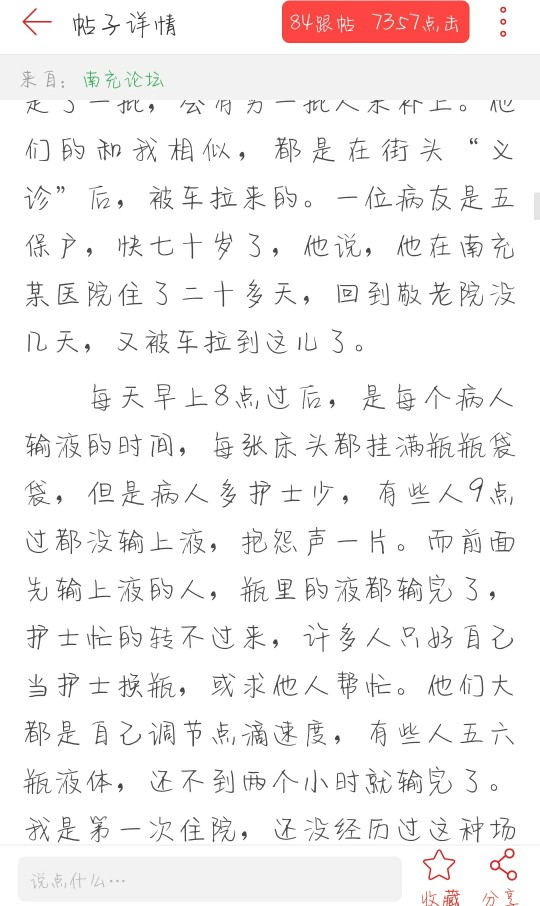 帖子详情
84跟帖 7357点击
来自：南充论坛
走了一批，会有另一批人来补上。他
们的和我相似，都是在街头“义
诊”后，被车拉来的。一位病友是五
保户，快七十岁了，他说，他在南充
某医院住了二十多天，回到敬老院没
几天，又被车拉到这儿了。
每天早上8点过后，是每个病人
输液的时间，每张床头都挂满瓶瓶袋
袋，但是病人多护士少，有些人9点
过都没输上液，抱怨声一片。而前面
先输上液的人，瓶里的液都输完了，
护士忙的转不过来，许多人只好自己
当护士换瓶，或求他人帮忙。他们大
都是自己调节点滴速度，有些人五六
瓶液体，还不到两个小时就输完了。
我是第一次住院，还没经历过这种场
说点什么…
收藏 分享